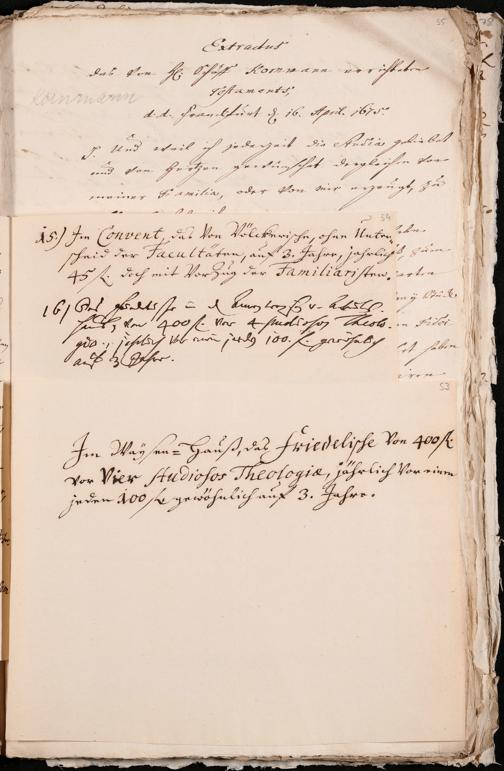 55
Extractus
des von H. Schöff Kornmann errichteten
Testaments
d. d. Franckfurt d. 16. April. 1675.
Kornmann
5. Und weil ich jederzeit die Studia geliebet
und von Hertzen gewünschet dergleichen von
meiner Familia, oder von mir erzeugt, zu
54
15) Im Convent, das Von Völckerische, ohne Unter
scheid der Facultäten, auf 3. Jahre, jährlich
45 fl. doch mit Vorzug der Familiaristen.
16) Das
von 400 fl. vor 4 studiosos Theolo
giæ, jährlich vor einen jeden 100. fl. gewöhnlich
auf 3 Jahre.
53
Im Waÿsen=Hauß, das Friedelische von 400 fl.
vor Vier Studiosos Theologiæ, jährlich vor einen
jeden 100 fl. gewöhnlich auf 3. Jahre.